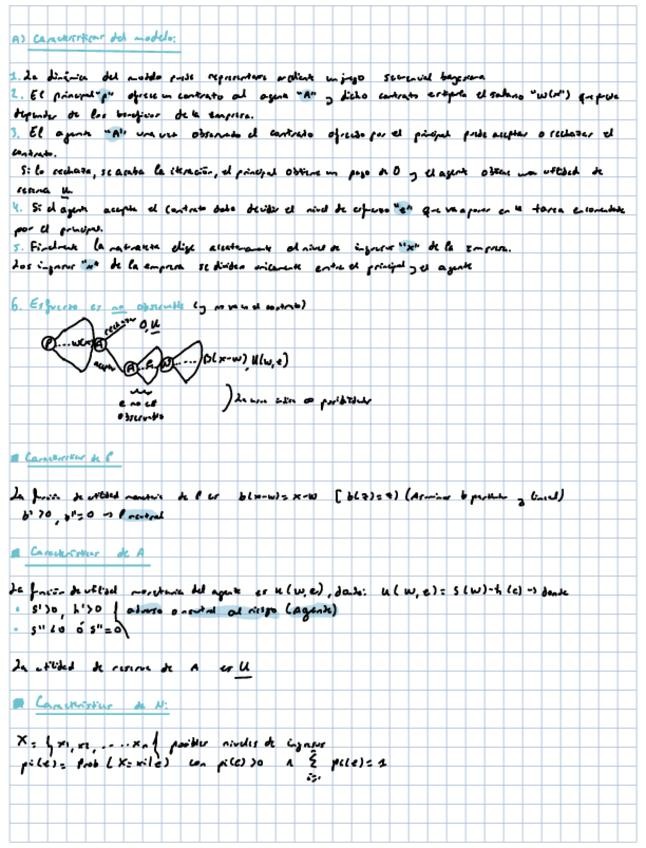 A) Características del modelo:
1. La dinámica del modelo puede representarse mediante un juego secuencial bayesiano
2. El principal "P" ofrece un contrato al agente "A" y dicho contrato estipula el salario "w(x)" que puede
depender de los beneficios de la empresa.
3. El agente "A" una vez observado el contrato ofrecido por el principal puede aceptar o rechazar el
contrato.
Si lo rechaza, se acaba la iteración, el principal obtiene un pago de 0 y el agente obtiene una utilidad de
reserva u.
4. Si el agente acepta el contrato debe decidir el nivel de esfuerzo "e" que va a poner en la tarea encomendada
por el principal.
5. Finalmente la naturaleza elige aleatoriamente el nivel de ingresos "x" de la empresa.
Los ingresos "x" de la empresa se dividen únicamente entre el principal y el agente
6. Esfuerzo es no observable (y no va en el contrato)
rechaza 0, u
P ... w(x) A
acepta A e N ... B(x-w), U(w,e)
e no es
observable
La curva indica ∞ posibilidades
Características de P
La función de utilidad monetaria de P es b(x-w) = x-w [b(z)=z] (Asumimos b y lineal)
b' > 0, b'' = 0 → P neutral
Características de A
La función de utilidad monetaria del agente es u(w,e), donde: u(w,e) = s(w) - h(e) → donde
• s' > 0, h' > 0 } adverso o neutral al riesgo (Agente)
• s'' < 0 ó s'' = 0
La utilidad de reserva de A es U
Características de N:
X = {x1, x2, ..... xn} posibles niveles de ingresos
pi(e) = Prob (X = xi|e) con pi(e) > 0 ∧ Σ pi(e) = 1